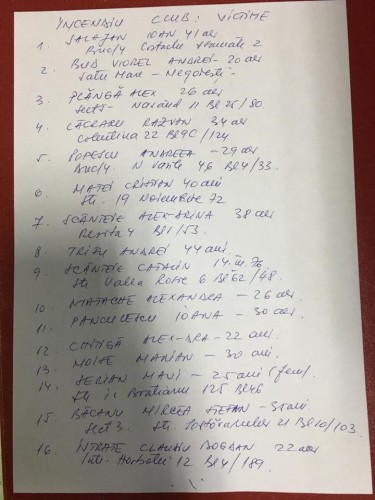 INCENDIU CLUB: VICTIME
1. SALAJAN IOAN 41 ani
Buc/4 Costache 2
2. BUD VIOREL ANDREI - 20 ani
Satu Mare - Negrești -
3. PLÂNGĂ ALEX 26 ani
Sect 5 - 11 BL 25/80
4. LĂCRARU RAZVAN 34 ani
Colentina 22 BL 9C/124
5. POPESCU ANDREEA - 29 ani
Buc/4. N 46 BL 4/33.
6. MATEI CRISTIAN 40 ani
Str. 19 Noiembrie 72
7. SCÂNTEIE ALEX-DRINA 38 ani
Resita 4 BL 1/53.
8. ANDREI 44 ani
9. SCÂNTEIE CATALIN 14.III.76
Str Valea Rosie 6 BL 62/48.
10. MATACHE ALEXANDRA - 26 ani
11. PANCULESCU IOANA - 30 ani
12. CHITIGĂ ALEX-DRA - 22 ani
13. MOISE MARIAN - 30 ani.
14. SERIAN MAVI - 25 ani (fem).
Str ic Bratianu 125 BL 46
15. BĂCANU MIRCEA STEFAN - 35 ani
Sect 3. Str. 21 BL 10/103
16. INTRATE CLAUDIU BOGDAN 22 ani
12 BL 4/189.